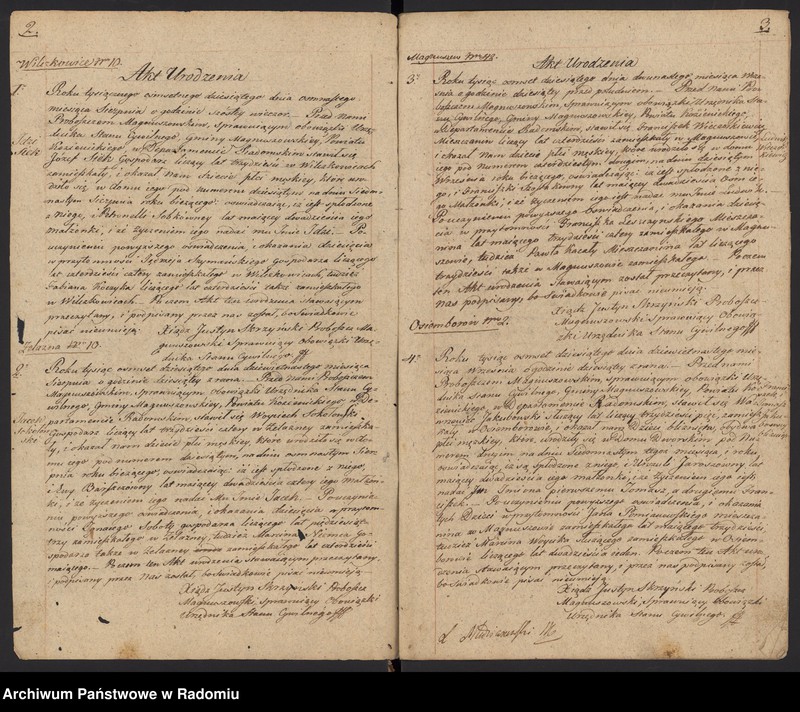 2.
Wilczkowice Nr 10.
Akt Urodzenia
1.
Roku tysiącznego osmsetnego dziesiątego dnia osmnastego
miesiąca Sierpnia o godzinie szostey wieczor. Przed Nami
Proboszczem Magnuszewskim, sprawuiącym obowiązki Urzę-
dnika Stanu Cywilnego, Gminy Magnuszewskiey, Powiatu
Kozienickiego, w Departamencie Radomskim stawił się
Jozef Siek Gospodarz liczący lat trzydzieści w Wilczkowicach
zamieszkały, i okazał Nam dziecie płci męskiey, które uro-
dziło się w domu iego pod numerem dziesiątym na dniu Siedm-
nastym Sierpnia roku bieżącego: oswiadczaiąc, iż iest spłodzone
z niego, i Petronelli lat maiącey dwadzieścia iego
małżonki, i że życzeniem iego nadać mu Imie Idzi. Po
uczynieniu powyższego oświadczenia, i okazania dziecięcia
w przytomności Szymańskiego Gospodarza liczącego
lat czterdzieści cztery zamieszkałego w Wilczkowicach, tudzież
Fabiana lat czterdzieści także zamieszkałego
w Wilczkowicach. Poczem Akt ten urodzenia stawaiącym
przeczytany, i podpisany przez nas został, bo świadkowie
pisać nieumieią.
Xiądz Justyn Skrzyński Proboszcz Ma-
gnuszewski Sprawuiący Obowiązki Urzę-
dnika Stanu Cywilnego
Idzi
Siek
Żelazna Nr 10.
2.
Roku tysiąc osmset dziesiątego dnia dziewiętnastego miesiąca
Sierpnia o godzinie dziesiątey z rana. Przed Nami Proboszczem
Magnuszewskim, Sprawuiącym obowiązki Urzędnika Stanu Cy-
wilnego, Gminy Magnuszewskiey, Powiatu Kozienickiego, w De-
partamencie Radomskim, stawił się Woyciech Sokolnski
Gospodarz liczący lat trzydzieści cztery w Żelazney zamieszka-
ły, i okazał nam dziecie płci męskiey, które urodziło się w do-
mu iego pod numerem dziesiątym, na dniu osmnastym Sier-
pnia roku bieżącego, oświadczaiąc iż iest spłodzone z niego,
i Ewy lat maiącey dwadzieścia cztery iego małżon-
ki, i że życzeniem iego nadać Mu Imie Jacek. Po uczynie-
niu powyższego oświadczenia, i okazania dziecięcia w przytom-
ności Soboty gospodarza liczącego lat pięćdziesiąt
trzy zamieszkałego w Żelazney, tudzież Marcina Go-
spodarza także w Żelazney zamieszkałego lat czterdzieści
maiącego. Poczem ten Akt urodzenia stawaiącym przeczytany
i podpisany przez Nas został, bo świadkowie pisać nieumieią.
Xiądz Justyn Skrzyński Proboszcz
Magnuszewski, Sprawuiący Obowiązki
Urzędnika Stanu Cywilnego
Jacek
Sokoln-
ski
3.
Magnuszew Nro 42.
Akt Urodzenia
3.
Roku tysiąc osmset dziesiątego dnia dwunastego miesiąca Wrze-
śnia o godzinie dziesiątey przed południem. Przed Nami Pro-
boszczem Magnuszewskim, Sprawuiącym obowiązki Urzędnika Sta-
nu Cywilnego, Gminy Magnuszewskiey, Powiatu Kozienickiego,
w Departamencie Radomskim, stawił się Franciszek
Mieszczanin liczący lat czterdzieści zamieszkały w Magnuszewie
i okazał Nam dziecie płci męskiey, które urodziło się w domu
iego pod numerem czterdziestym drugim, na dniu dziesiątym
Września roku bieżącego, oświadczaiąc iż iest spłodzone z nie-
go, i Franciszki lat maiącey dwadzieścia osm ie-
go Małżonki, i że życzeniem iego iest nadać mu Imie Ludwik.
Po uczynieniu powyższego oświadczenia, i okazania dziecię-
cia w przytomności Franciszka Leszczyńskiego Mieszcza-
nina lat maiącego trzydzieści cztery zamieszkałego w Magnu-
szewie, tudzież Pawła Mieszczanina lat liczącego
trzydzieści także w Magnuszewie zamieszkałego. Poczem
ten Akt urodzenia stawaiącym został przeczytany, i przez
Nas podpisany, bo świadkowie pisać nieumieią.
Xiądz Justyn Skrzyński Proboszcz
Magnuszewski Sprawuiący Obowią-
zki Urzędnika Stanu Cywilnego
Ludwik
Osiemborów Nro 2.
4.
Roku tysiąc osmset dziesiątego dnia dziewiętnastego mie-
siąca Września o godzinie dziesiątey z rana. Przed Nami
Proboszczem Magnuszewskim, Sprawuiącym obowiązki Urzę-
dnika Stanu Cywilnego, Gminy Magnuszewskiey, Powiatu Ko-
zienickiego, w Departamencie Radomskim, stawił się Wa-
wrzyniec Jakubowski Służący lat liczący trzydzieści pięć, zamiesz-
kały w Osiemborowie, i okazał nam Dzieci bliźnięta, obydwa
płci męskiey, które urodziły się w Domu Dworskim pod Nu-
merem drugim na dniu Siedmnastym tegoż miesiąca, i roku,
oświadczaiąc, iż są spłodzone z niego, i Urszuli Jaroszowny lat
maiącey dwadzieścia iego małżonki, i że życzeniem iego iest,
nadać Im Imiona pierwszemu Tomasz, a drugiemu Fran-
ciszek. Po uczynieniu powyższego oświadczenia, i okazania
tych Dzieci w przytomności Jana Romianowskiego mieszcza-
nina w Magnuszewie zamieszkałego lat maiącego trzydzieści,
tudzież Marcina Woycika Służącego zamieszkałego w Osiem-
borowie liczącego lat dwadzieścia ieden. Poczem ten Akt uro-
dzenia stawaiącym przeczytany, i przez nas podpisany został,
bo świadkowie pisać nieumieią.
Xiądz Justyn Skrzyński Proboszcz
Magnuszewski, Sprawuiący Obowiązki
Urzędnika Stanu Cywilnego
Archiwum Państwowe w Radomiu